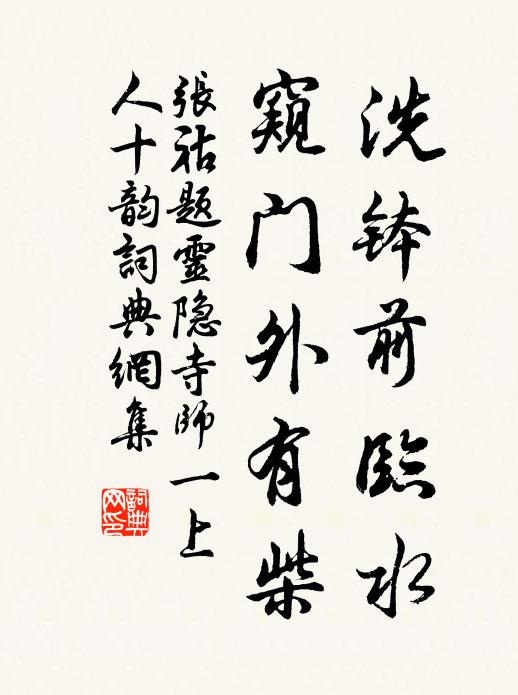 洗钵前臨水
窺門外有柴
張祜題靈隐寺師一上
人十韵詞典網集
詞典网印